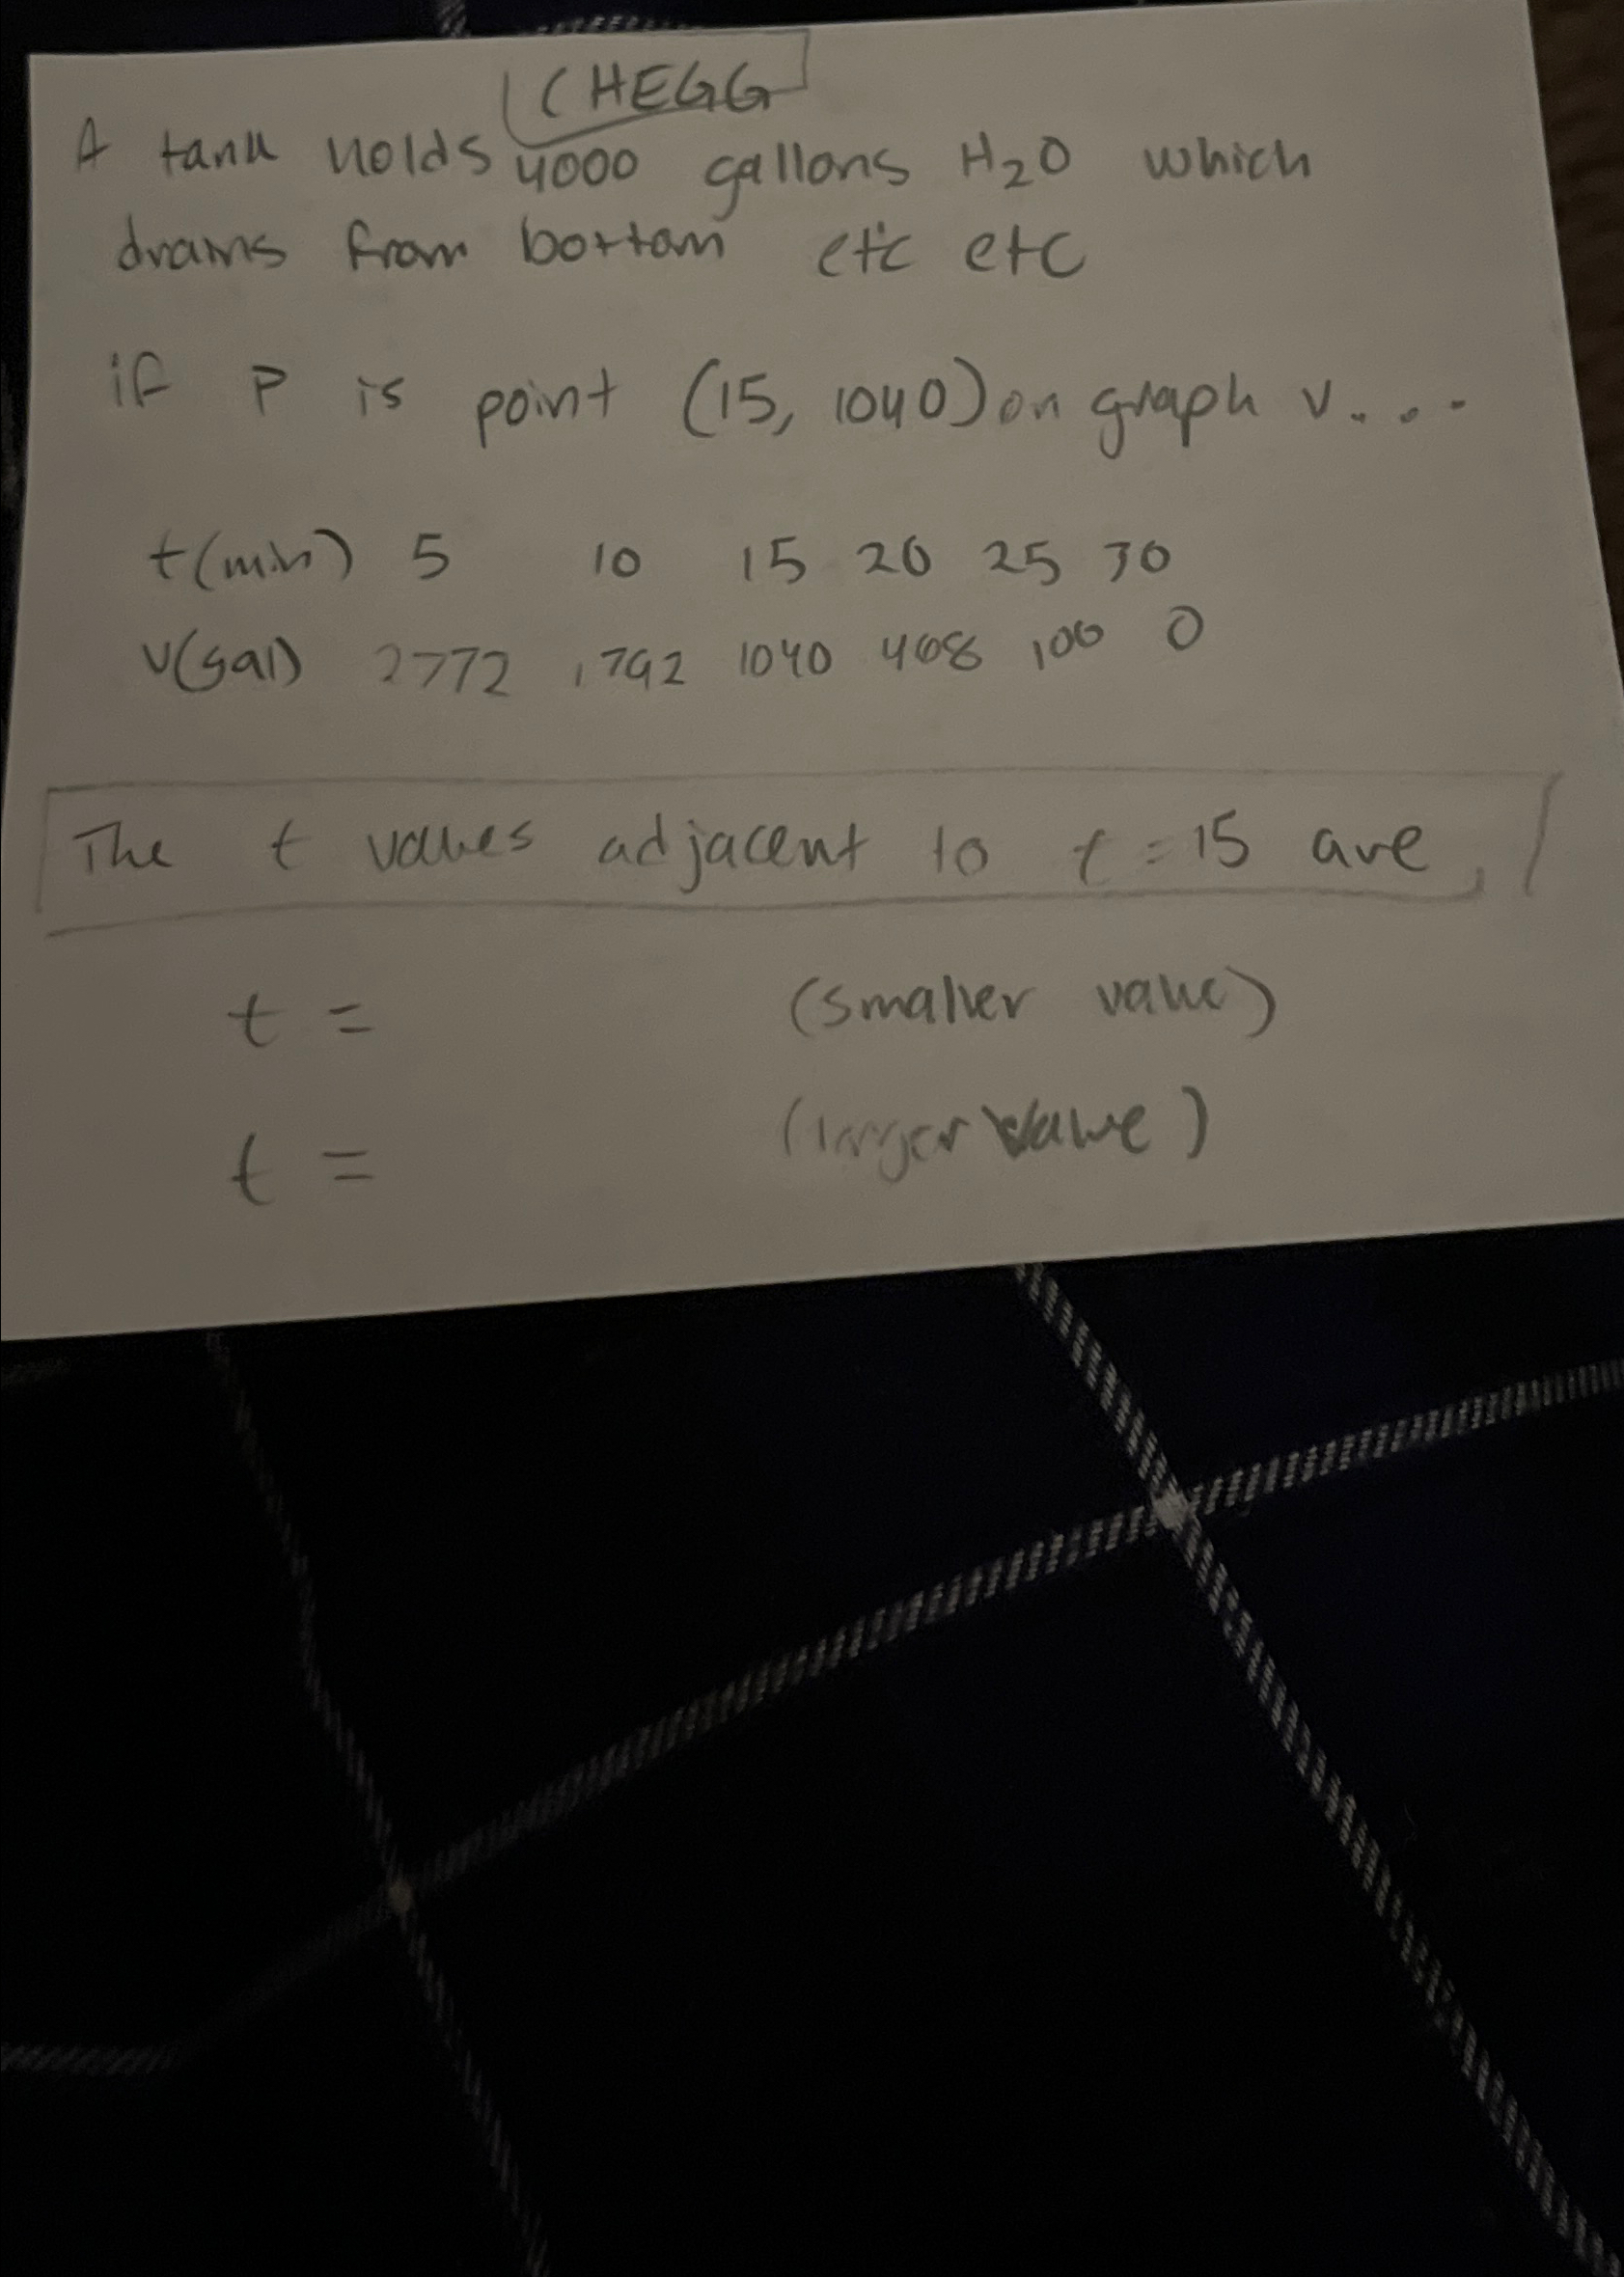 CHEGG
A tank holds 4000 gallons H2O which
drains from bottom etc etc
if P is point (15, 1040) on graph v....
t(min) 5 10 15 20 25 30
v(gal) 2772 1792 1040 468 100 0
The t values adjacent to t = 15 are,
t = (smaller value)
t = (larger value)